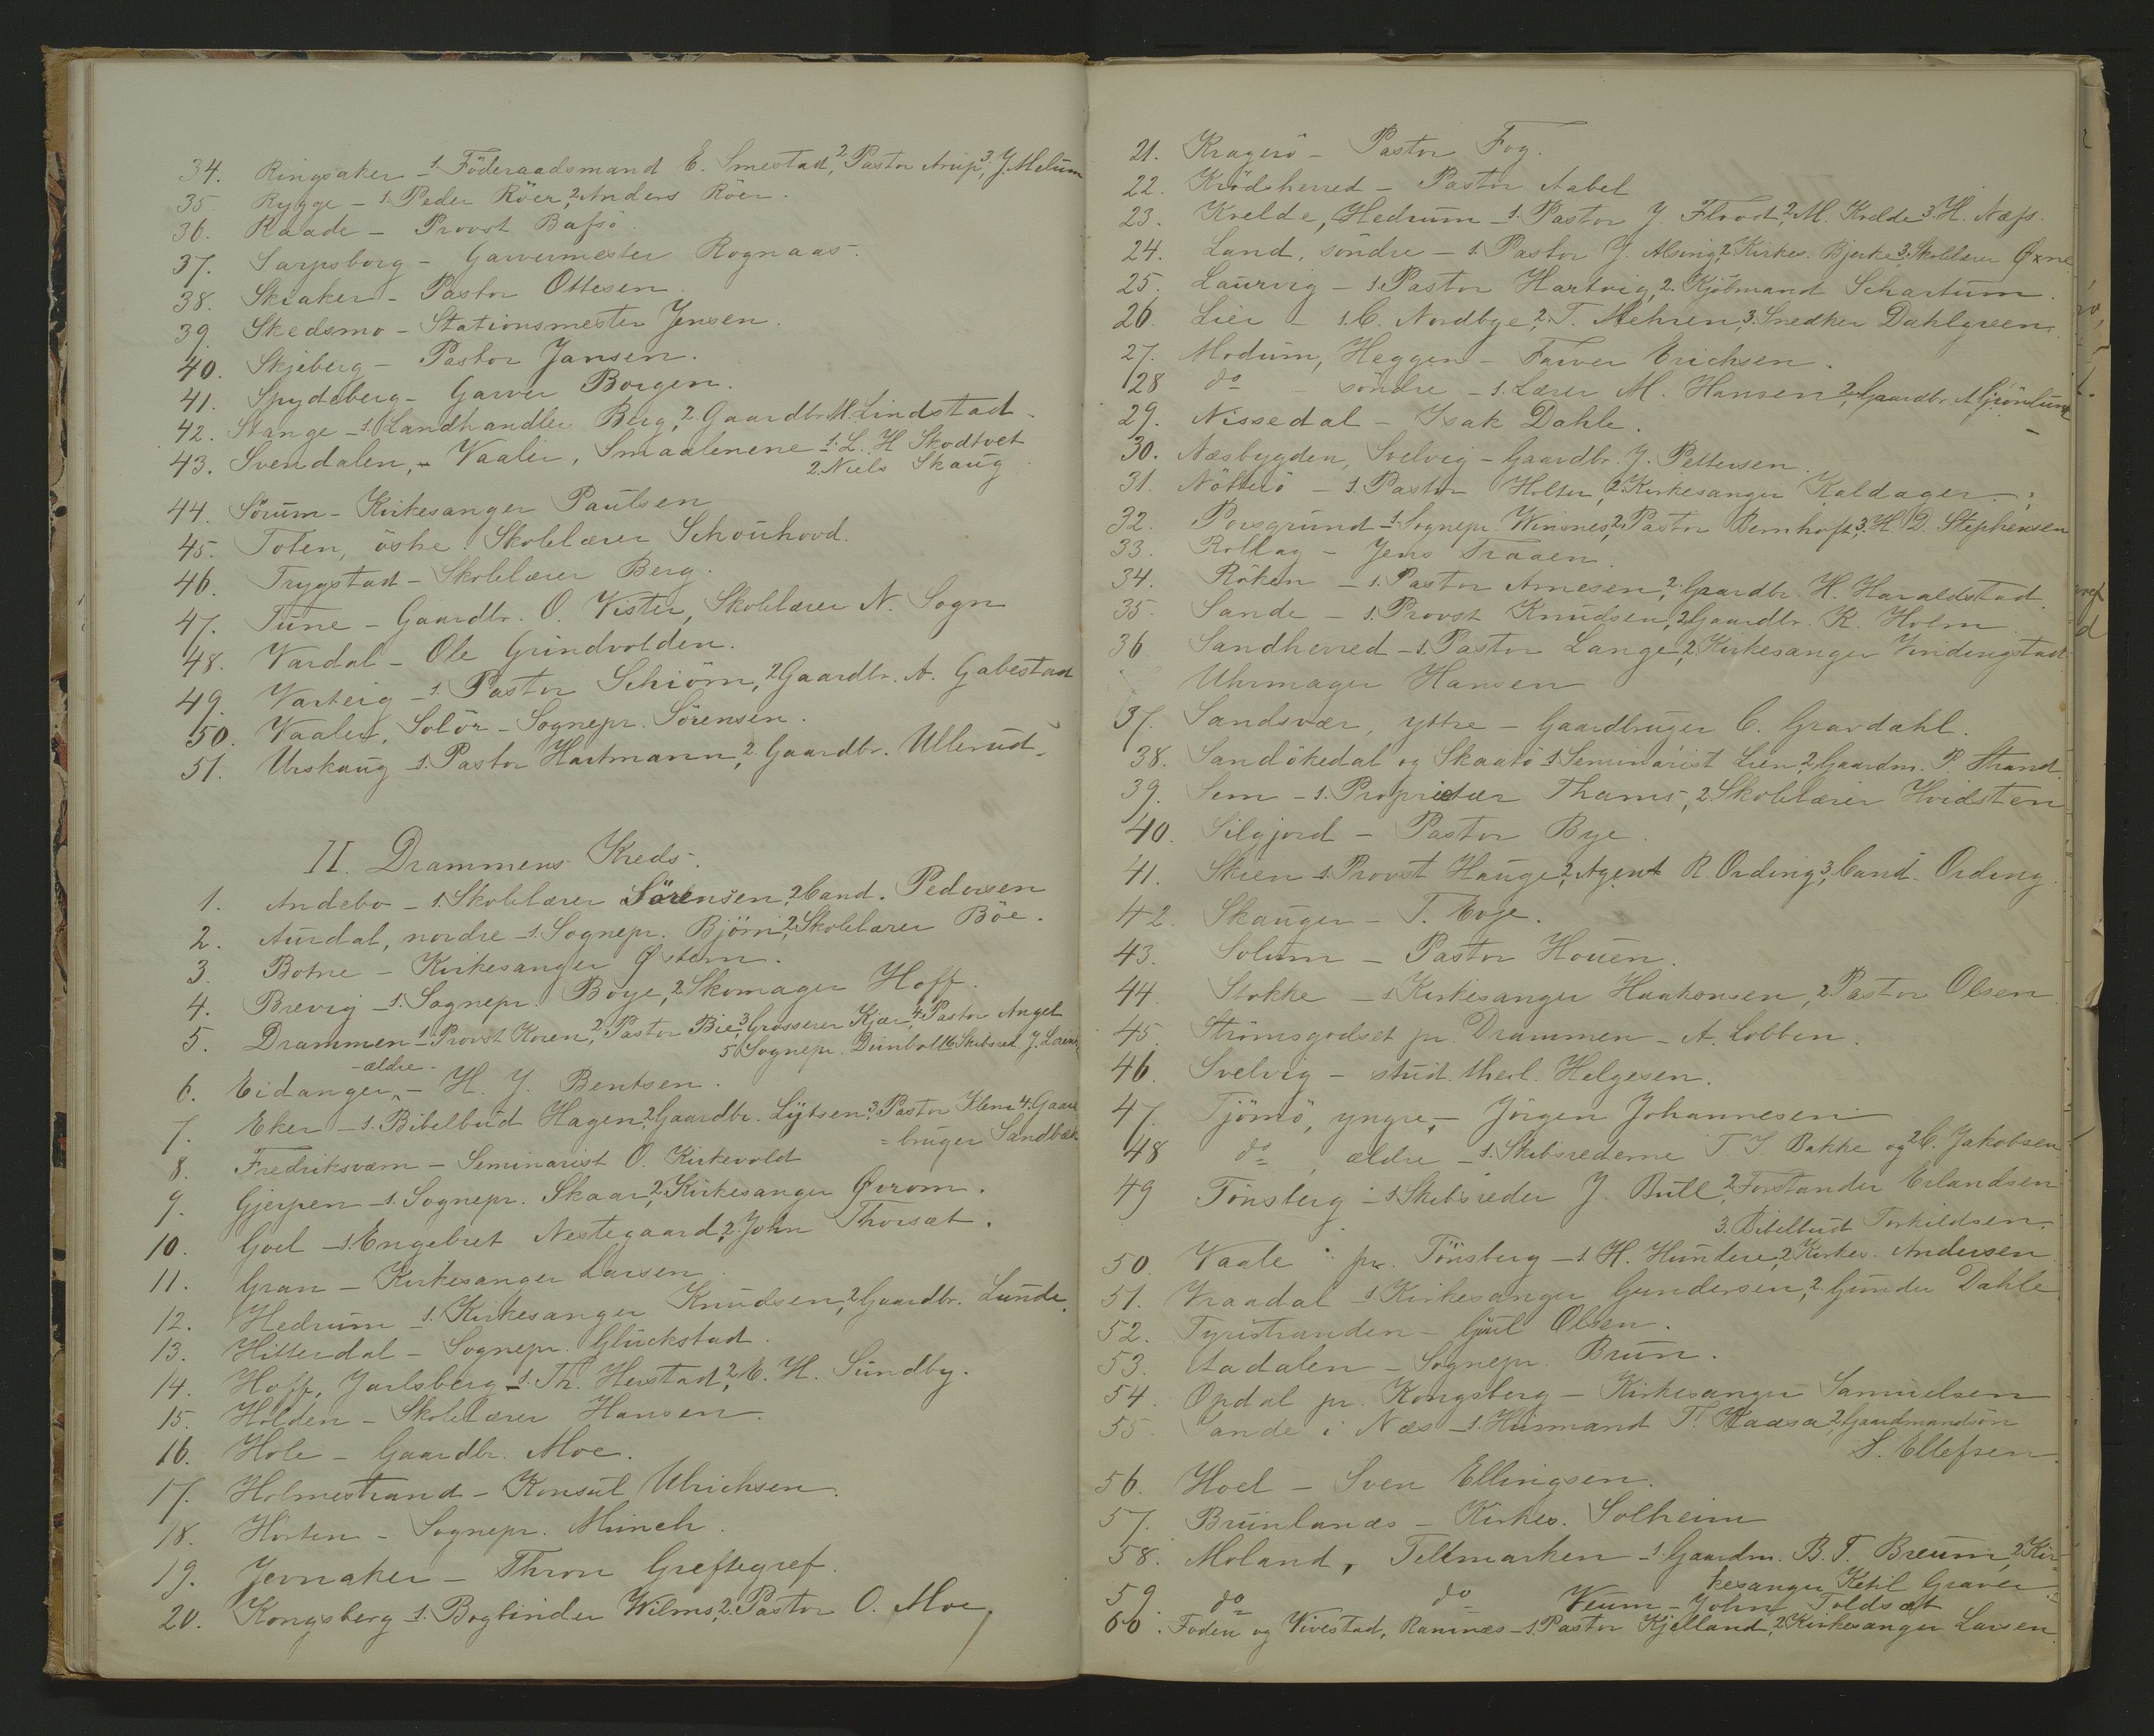 34. Ringsaker - 1. Föderaadsmand E. Smestad, 2. Pastor Arup, 3. J. Melum
35. Rygge - 1. Peder Röer, 2. Anders Röer.
36. Raade - Provst Bassö.
37. Sarpsborg - Garvermester Rognaas.
38. Skiaker - Pastor Ottesen
39. Skedsmo - Stationsmester Jensen.
40. Skjeberg - Pastor Jansen.
41. Spydeberg - Garver Borgen.
42. Stange - 1. Landhandler Berg, 2. Gaardbr. M. Lindstad.
43. Svendalen, - Vaaler, Smaalenene - 1. L. H. Skodtvet
2. Niels Skaug
44. Sörum - Kirkesanger Paulsen
45. Toten, östre. Skolelærer Schouhovd.
46. Trygstad - Skolelærer Berg.
47. Tune - Gaardbr. O. Vister, Skolelærer N. Sogn
48. Vardal - Ole Grindvolden.
49. Varteig - 1. Pastor Schiörn, 2 Gaardbr. A. Gabestad
50. Vaaler, Solör - Sognepr. Sörensen.
51. Urskaug - 1. Pastor Hartmann, 2. Gaardbr. Ullerud.
II. Drammens Kreds.
1. Andebo - 1. Skolelærer Sörensen, 2. Cand. Pedersen
2. Aurdal, nordre - 1. Sognepr. Bjørn, 2. Skolelærer Böe.
3. Botne - Kirkesanger Østern.
4. Brevig - 1. Sognepr. Boye, 2 Skomager Hoff.
5. Drammen - 1. Provst Koren, 2. Pastor Bie, 3. Grosserer Kjær, 4. Pastor Angel
5. Sognepr. Dünboll 6 Skibsred. J. Lorent
6. Eidanger, - ældre - H. J. Bentsen.
7. Eker - 1. Bibelbud Hagen, 2. Gaardbr. Lytsen, 3. Pastor Klem 4. Gaard
= bruger Sandbæk
8. Fredriksværn - Seminarist O. Kirkevold
9. Gjerpen - 1. Sognepr. Skaar, 2. Kirkesanger Øvrom.
10. Goel - 1. Engebret Nestegaard, 2. John Thorsæt.
11. Gran - Kirkesanger Larsen.
12. Hedrum - 1. Kirkesanger Knudsen, 2 Gaardbr. Lunde.
13. Hitterdal - Sognepr. Glückstad.
14. Hoff, Jarlsberg - 1. Th. Herstad, 2. E. H. Sundby.
15. Holden - Skolelærer Hansen.
16. Hole - Gaardbr. Moe.
17. Holmestrand - Konsul Ulrichsen.
18. Horten - Sognepr. Münch.
19. Jevnaker - Thron Greftegref.
20. Kongsberg - 1. Bogbinder Wilms, 2. Pastor O. Moe,
21. Kragerö - Pastor Fog.
22. Krödsherred - Pastor Aabel
23. Kvelde, Hedrum - 1. Pastor J. Flood, 2. M. Kvelde 3. H. Næss.
24. Land, söndre - 1. Pastor J. Alsing, 2. Kirkes. Bjerke 3. Skolelærer Øxne
25. Laurvig - 1. Pastor Hartvig, 2. Kjöbmand Schartum.
26. Lier - 1. C. Nordbye, 2. T. Mehren, 3. Snedker Dahlgreen.
27. Modum, Heggen - Farver Erichsen.
28 do söndre - 1. Lærer M. Hansen 2, Gaardbr. A Grönlund
29. Nissedal - Isak Dahle.
30. Næsbygden, Svelvig - Gaardbr. J. Pettersen.
31. Nötterö - 1. Pastor Holter, 2. Kirkesanger Kaldager.
32. Porsgrund - 1. Sognepr. Winsnes, 2. Pastor Bernhoft, 3. H. D. Stephensen
33. Rollag - Jens Traaen.
34. Röken - 1. Pastor Arnesen, 2. Gaardbr. H. Haraldstad.
35. Sande - 1. Provst Knudsen, 2. Gaardbr. K. Holm
36 Sandherred - 1. Pastor Lange, 2. Kirkesanger Vindingstad
Uhrmager Hansen
37. Sandsvær, ytre - Gaardbruger C. Gravdahl.
38. Sandökedal og Skaatö - 1. Seminarist Lien, 2. Gaardm. P. Strand.
39. Sem - 1. Proprietær Thams, 2. Skolelærer Hvidsten
40. Silgjord - Pastor Bye.
41. Skien - 1. Provst Hauge, 2. Agent R. Ording, 3. Cand. Ording.
42. Skauger - T. Eoje.
43. Solum - Pastor Houen.
44. Stokke - 1. Kirkesanger Haakonsen, 2. Pastor Olsen
45. Strömsgodset pr. Drammen - A. Cobben.
46. Svelvig - stud. theol. Helgesen.
47. Tjömö, yngre, - Jörgen Johannesen.
48 do, ældre - 1. Skibsrederne T. I. Bakke og 2. C. Jakobsen
49 Tönsberg - 1. Skibsreder J. Bull, 2. Forstander Erlandsen
3. Bibelbud Torkildsen.
50. Vaale pr. Tönsberg - 1. H. Hundere, 2. Kirkes. Andersen
51. Vraadal - 1. Kirkesanger Gundersen, 2. Gunder Dahle
52. Tyristranden - Gjul Olsen.
53. Aadalen - Sognepr. Brun.
54. Opdal pr. Kongsberg - Kirkesanger Samuelsen
55. Sande i Næs - 1. Husmand T. Kaasa 2. Gaardmandsön
S. Ellefsen
56. Hoel - Sven Ellingsen.
57. Brunlanæs - Kirkes. Solheim
58. Moland, Tellmarken - 1. Gaardm. B. T. Breum, 2. Kir-
kesanger Ketil Graver
59 do do Veum - John Toldsæt
60. Foden og Vivestad, Ramnæs - 1. Pastor Kjelland, 2. Kirkesanger Larsen